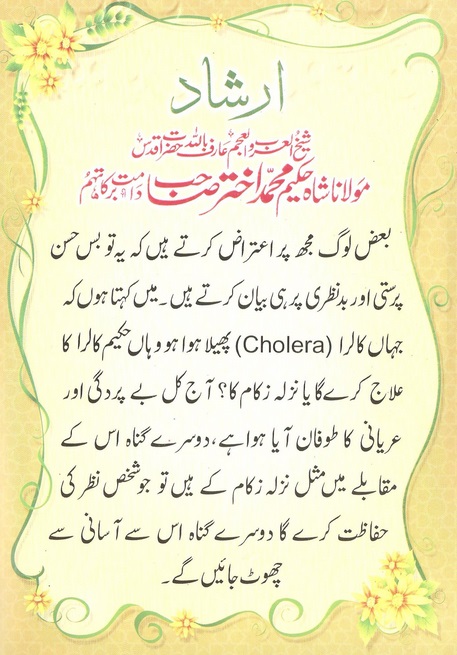 ارشاد
شیخ العرب والعجم عارف باللہ حضرت اقدس
مولانا شاہ حکیم محمد اختر صاحب دامت برکاتہم
بعض لوگ مجھ پر اعتراض کرتے ہیں کہ یہ تو بس حسن
پرستی اور بدنظری پر ہی بیان کرتے ہیں۔ میں کہتا ہوں کہ
جہاں کالرا (Cholera) پھیلا ہوا ہو وہاں حکیم کالرا کا
علاج کرے گا یا نزلہ زکام کا؟ آج کل بے پردگی اور
عریانی کا طوفان آیا ہوا ہے، دوسرے گناہ اس کے
مقابلے میں مثل نزلہ زکام کے ہیں تو جو شخص نظر کی
حفاظت کرے گا دوسرے گناہ اس سے آسانی سے
چھوٹ جائیں گے۔